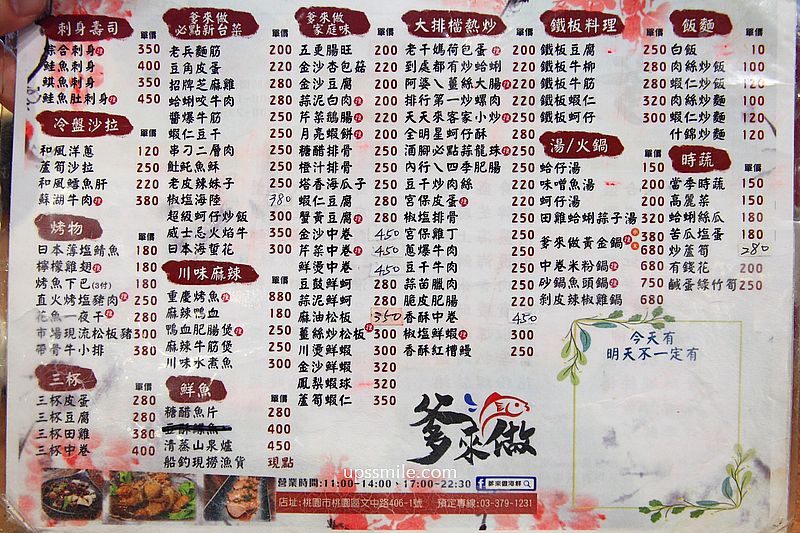 刺身壽司 單價
綜合刺身 350
鮭魚刺身 400
旗魚刺身 350
鮭魚肚刺身 450
冷盤沙拉 單價
和風洋蔥 120
蘆筍沙拉 250
和風鱈魚肝 220
蘇湖牛肉 380
烤物 單價
日本薄塩鯖魚 180
檸檬雞翅 180
烤魚下巴(3付) 180
直火烤塩豬肉 250
花魚一夜干 250
市場現流松板豬 300
帶骨牛小排 380
三杯 單價
三杯皮蛋 280
三杯豆腐 280
三杯田雞 380
三杯中卷 400
爹來做
必點新台菜 單價
老兵麵筋 200
豆角皮蛋 220
招牌芝麻雞 280
蛤蜊咬牛肉 280
醬爆牛筋 250
蝦仁豆干 250
串刀二層肉 250
魠魠魚酥 250
老皮辣妹子 250
椒塩海陸 380
超級蚵仔炒飯 300
威士忌火焰牛 350
日本海蜇花 300
川味麻辣 單價
重慶烤魚 880
麻辣鴨血 180
鴨血肥腸煲 250
麻辣牛筋煲 250
川味水煮魚 300
鮮魚 單價
糖醋魚片 280
400
清蒸山泉爐 450
船釣現撈漁貨 現點
爹來做
家庭味 單價
五更腸旺 200
金沙杏包菇 220
金沙豆腐 200
蒜泥白肉 200
芹菜鵝腸 250
月亮蝦餅 200
糖醋排骨 250
橙汁排骨 250
塔香海瓜子 250
蝦仁豆腐 280
蟹黃豆腐 280
金沙中卷 450
芹菜中卷 450
鮮燙中卷 450
豆鼓鮮蚵 280
蒜泥鮮蚵 280
麻油松板 350
薑絲炒松板 300
川燙鮮蝦 300
金沙鮮蝦 320
鳳梨蝦球 320
蘆筍蝦仁 350
大排檔熱炒 單價
老干媽荷包蛋 200
到處都有炒蛤蜊 220
阿婆ㄟ薑絲大腸 220
排行第一炒螺肉 220
天天來客家小炒 250
全明星蚵仔酥 280
酒腳必點蒜龍珠 250
內行ㄟ四季肥腸 250
豆干炒肉絲 220
宮保皮蛋 220
椒塩排骨 250
宮保雞丁 250
蔥爆牛肉 250
豆干牛肉 250
蒜苗臘肉 250
脆皮肥腸 250
香酥中卷 450
椒塩鮮蝦 300
香酥紅糟鰻 250
鐵板料理 單價
鐵板豆腐 250
鐵板牛柳 280
鐵板牛筋 280
鐵板蝦仁 320
鐵板蚵仔 300
湯/火鍋 單價
蛤仔湯 150
味噌魚湯 200
蚵仔湯 200
田雞蛤蜊蒜子湯 320
爹來做黃金鍋 380
680
中卷米粉鍋 680
砂鍋魚頭鍋 750
剝皮辣椒雞鍋 680
飯麵 單價
白飯 10
肉絲炒飯 100
蝦仁炒飯 120
肉絲炒麵 100
蝦仁炒麵 120
什錦炒麵 120
時蔬 單價
當季時蔬 150
高麗菜 150
蛤蜊絲瓜 180
苦瓜塩蛋 180
炒蘆筍 280
有錢花 200
鹹蛋綠竹筍 250
今天有
明天不一定有
爹來做
upssmile.com
營業時間:11:00-14:00、17:00-22:30
爹來做海鮮
店址:桃園市桃園區文中路406-1號 預定專線:03-379-1231